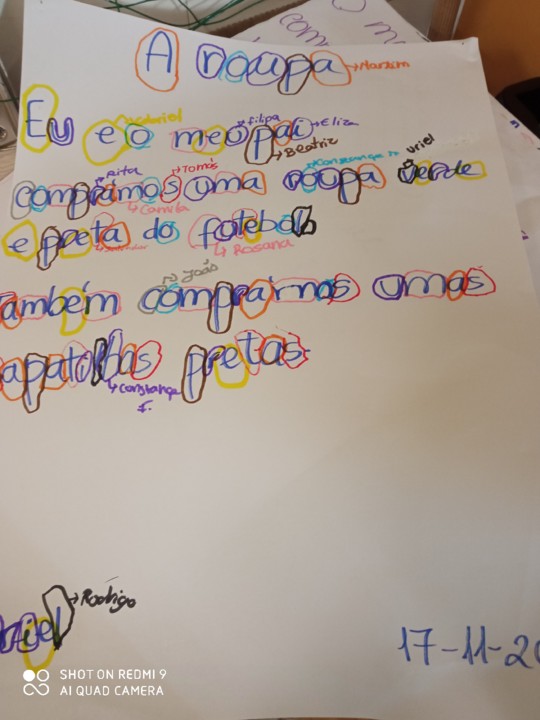 A roupa
Martim
Eu e o meu pai
Gabriel
Filipa
Eliza
Beatriz
Rita
Tomás
Constança
Uriel
comprámos uma roupa verde
Camila
e preta do futebol
Rosana
João
também comprármos umas
sapatilhas pretas.
Constança
F.
Rodrigo
riel
17-11-20
SHOT ON REDMI 9
AI QUAD CAMERA